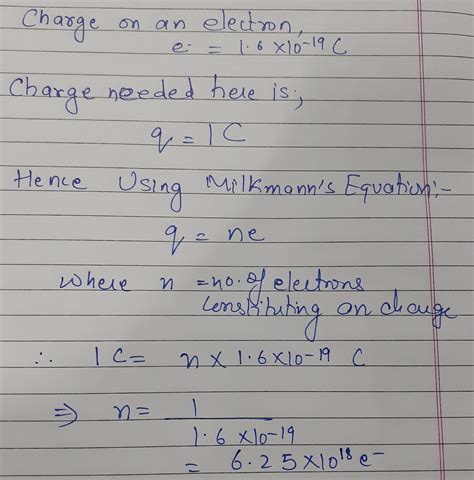 Charge on an electron,
e = 1.6 ×10-19 C
Charge needed here is;,
q = 1 C
Hence Using Milkmann's Equation:-
q = ne
where n = no. of electrons
Constituting on charge
∴ 1 C = n × 1.6×10-19 C
⇒ n = 1
1.6 ×10-19
= 6.25 ×10¹⁸ e-